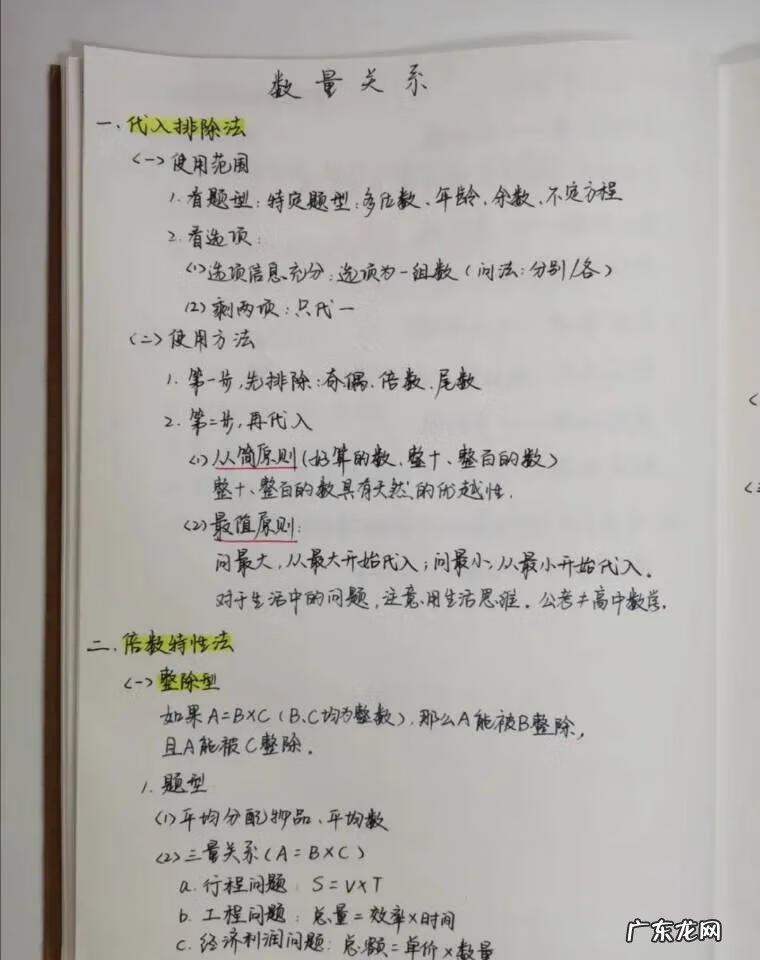 数量关系
一、代入排除法
(一)使用范围
1.看题型:特定题型:多位数、年龄、余数、不定方程
2.看选项:
(1)选项信息充分:选项为一组数(问法:分别/各)
(2)剩两项:只代一
(二)使用方法
1.第一步,先排除:奇偶、倍数、尾数
2.第二步,再代入
(1)从简原则(好算的数、整十、整百的数)
整十、整百的数具有天然的优越性.
(2)最值原则:
问最大,从最大开始代入;问最小,从最小开始代入。
对于生活中的问题,注意用生活思维。公考≠高中数学.
二、倍数特性法
(一)整除型
如果A=B×C(B、C均为整数),那么A能被B整除,
且A能被C整除.
1.题型
(1)平均分配物品、平均数
(2)三量关系(A=B×C)
a.行程问题 S=V×T
b.工程问题:总量=效率×时间
c.经济利润问题:总额=单价×数量
广东龙网